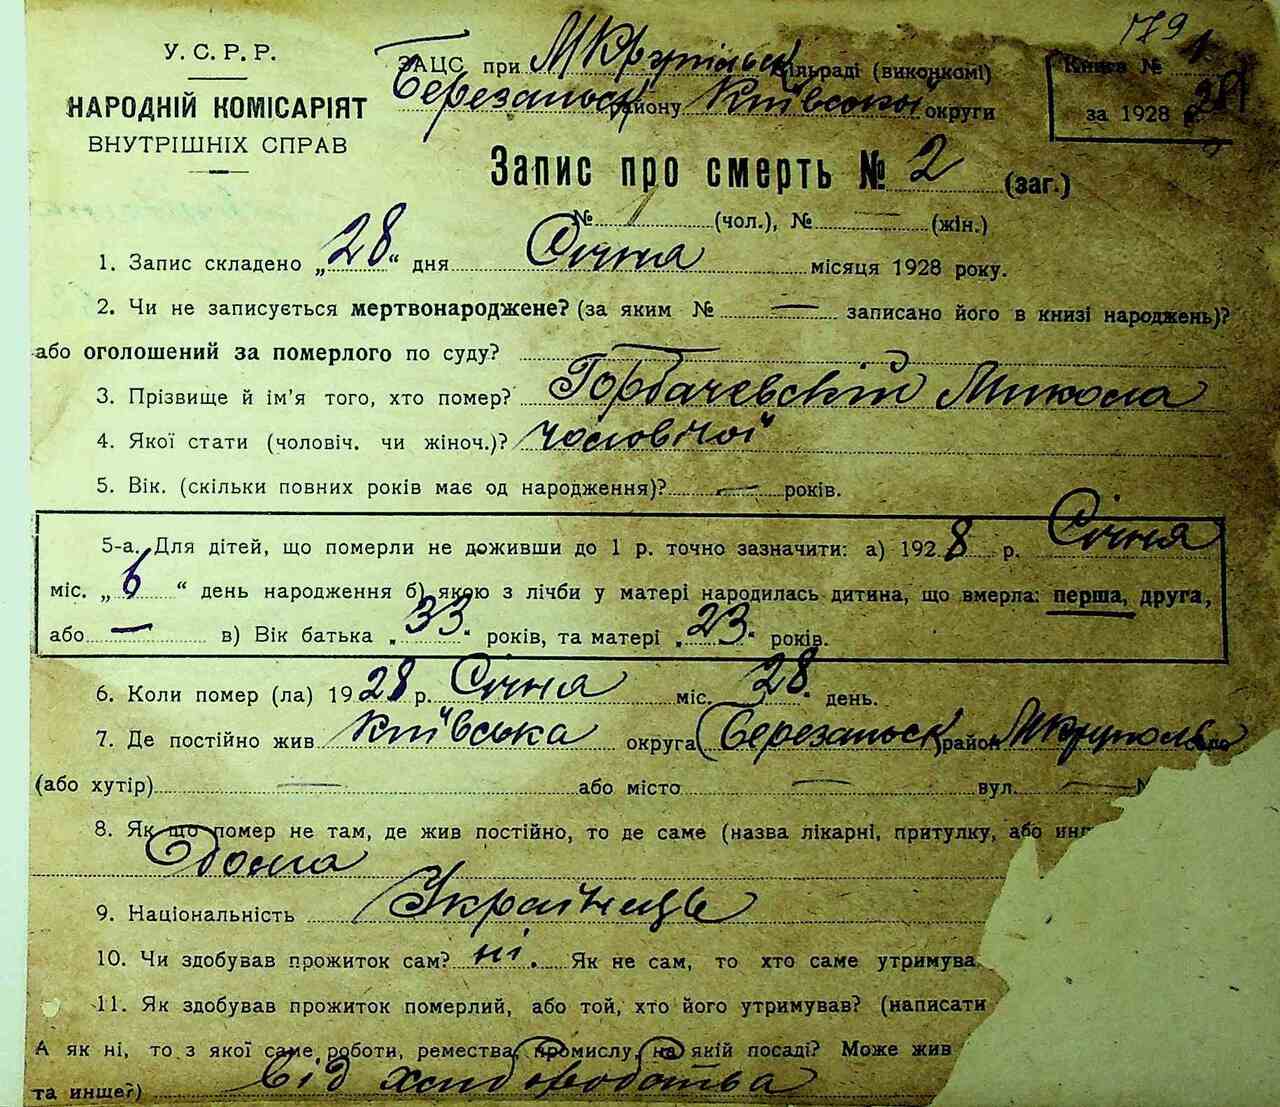 179
У. С. Р. Р.
НАРОДНІЙ КОМІСАРІЯТ
ВНУТРІШНІХ СПРАВ
ЗАЦС при МКрупільськ сільраді (виконкомі)
Березанськ району Київської округи
Книга № 1
за 1928 р. 28
Запис про смерть № 2 (заг.)
№ 1 (чол.), № — (жін.)
1. Запис складено „28“ дня Січня місяця 1928 року.
2. Чи не записується мертвонароджене? (за яким № — записано його в книзі народжень)?
або оголошений за померлого по суду? —
3. Прізвище й ім'я того, хто помер? Горбачевський Микола
4. Якої стати (чоловіч. чи жіноч.)? чоловічої
5. Вік. (скільки повних років має од народження)? — років.
5-а. Для дітей, що померли не доживши до 1 р. точно зазначити: а) 1928 р. Січня
міс. „6“ день народження б) якою з лічби у матері народилась дитина, що вмерла: перша, друга,
або — в) Вік батька „33„ років, та матері „23„ років.
6. Коли помер (ла) 1928 р. Січня міс. 28 день.
7. Де постійно жив Київська округа Березанськ район МКруполь село
(або хутір) — або місто — вул. —
8. Як що помер не там, де жив постійно, то де саме (назва лікарні, притулку, або
Дома
9. Національність Українець
10. Чи здобував прожиток сам? ні. Як не сам, то хто саме утримува
11. Як здобував прожиток померлий, або той, хто його утримував? (написати
А як ні, то з якої саме роботи, ремества, промислу, на якій посаді? Може жив
та инше?) Від